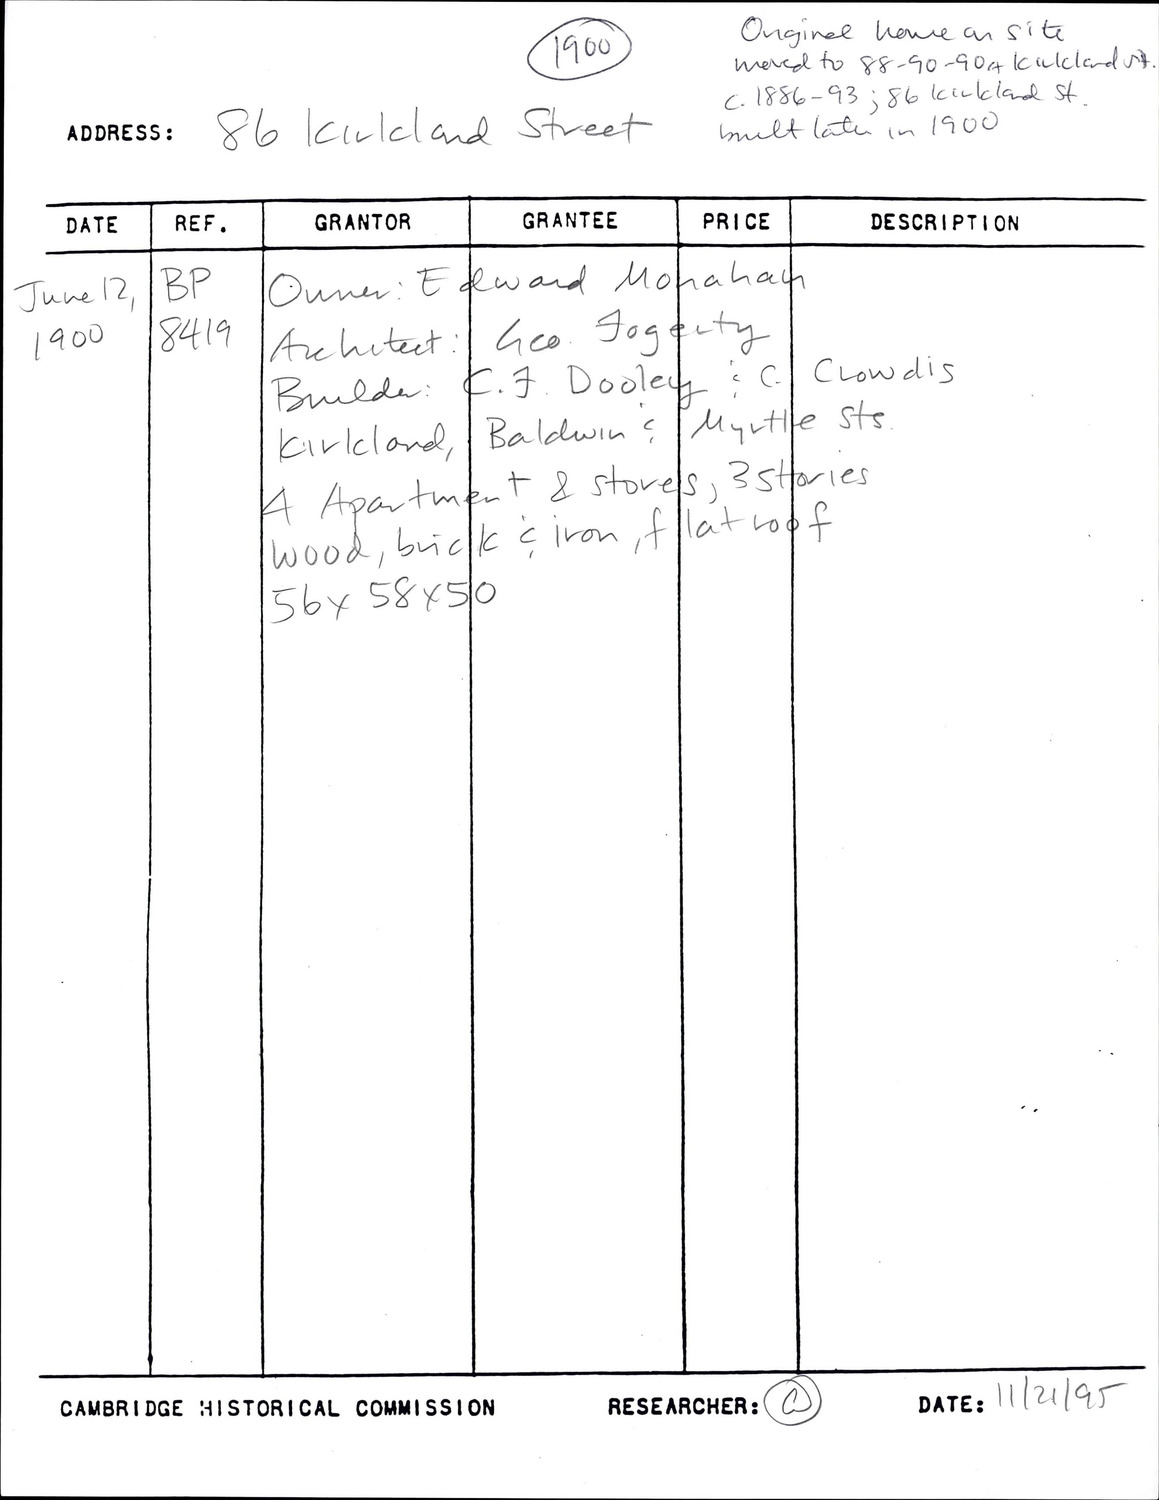 1900
Original house on site
moved to 88-90-90A Kirkland St.
c. 1886-93; 86 Kirkland St.
built later in 1900
ADDRESS: 86 Kirkland Street
DATE REF. GRANTOR GRANTEE PRICE DESCRIPTION
June 12, BP Owner: Edward Monahan
1900 8419 Architect: Geo. Fogerty
Builder: C.F. Dooley & C. Crowdis
Kirkland, Baldwin & Myrtle Sts.
4 Apartment & stores, 3 stories
wood, brick & iron, flat roof
56 x 58 x 50
CAMBRIDGE HISTORICAL COMMISSION RESEARCHER: DATE: 11/21/95